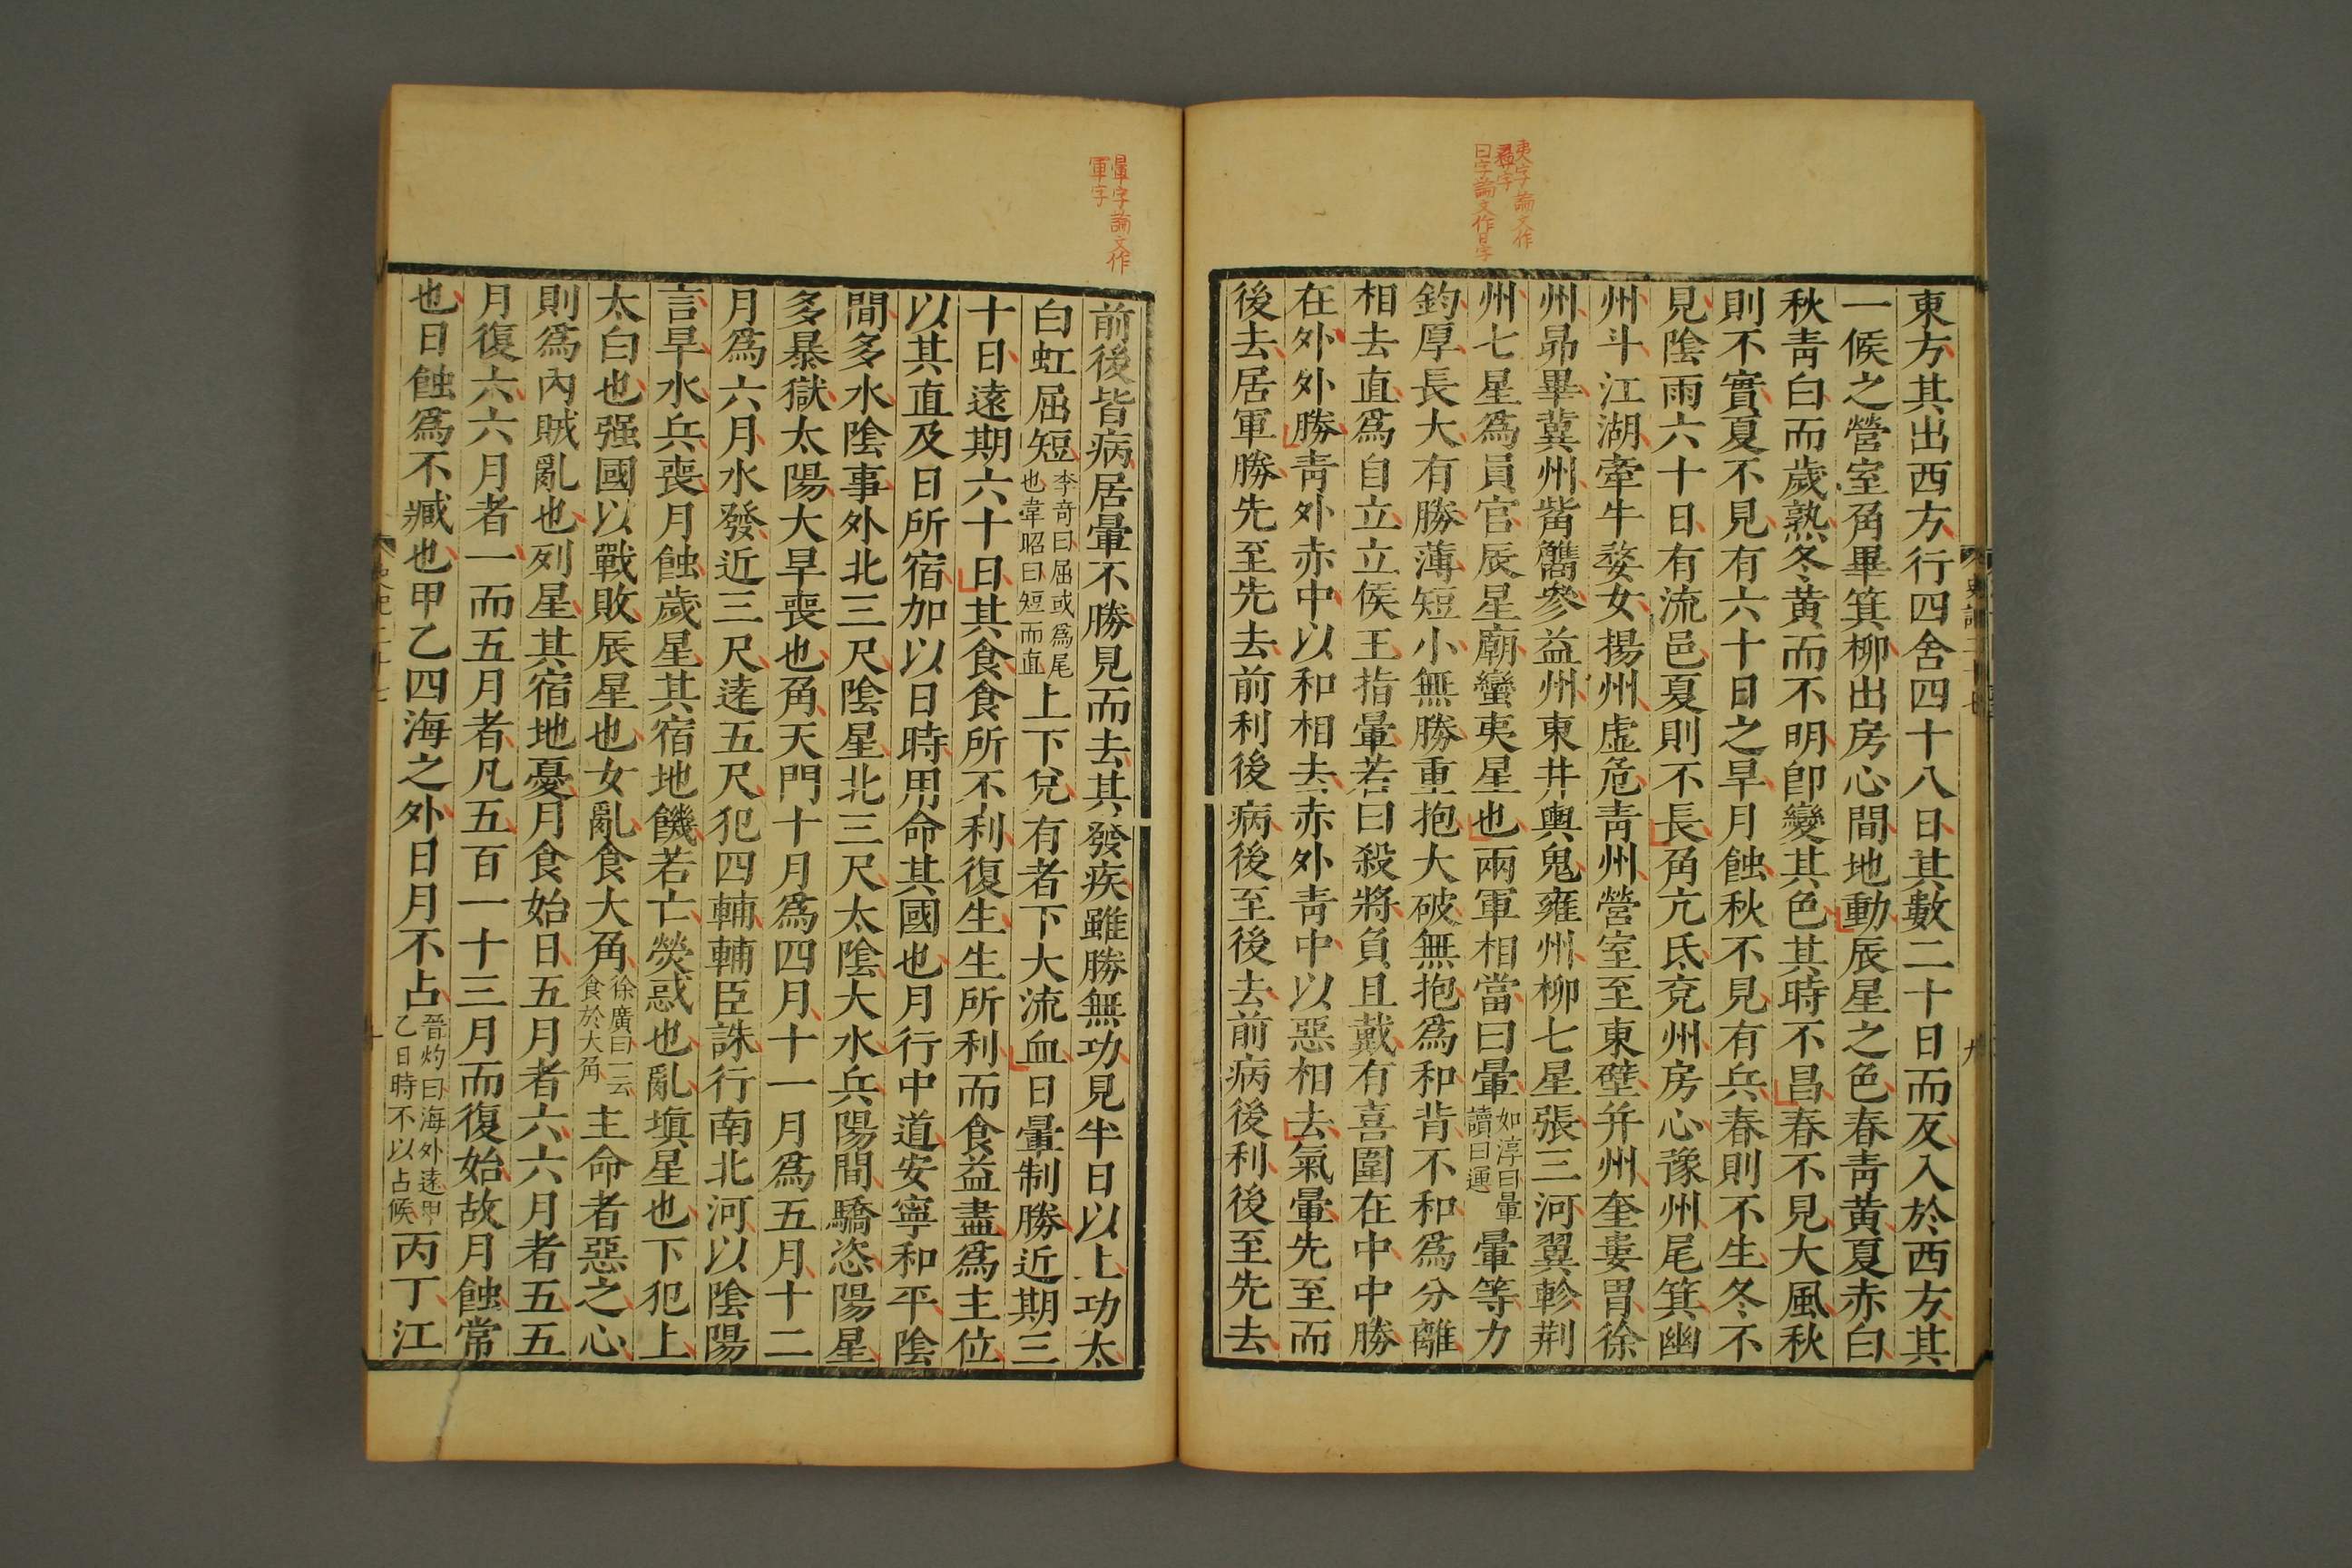 夷字論文作
曰字論文作日字
東方其出西方行四舍四十八日其數二十日而反入於西方其
一候之營室角畢箕柳出房心間地動辰星之色春靑黃夏赤白
秋靑白而歲熟冬黃而不明卽變其色其時不昌春不見大風秋
則不實夏不見有六十日之旱月蝕秋不見有兵春則不生冬不
見陰雨六十日有流邑夏則不長角亢氐兗州房心豫州尾箕幽
州斗江湖牽牛婺女揚州虛危靑州營室至東壁幷州奎婁胃徐
州昴畢冀州觜觿參益州東井輿鬼雍州柳七星張三河翼軫荆
州七星爲員官辰星廟蠻夷星也兩軍相當曰暈如淳曰暈讀曰運暈等力
鈞厚長大有勝薄短小無勝重抱大破無抱爲和背不和爲分離
相去直爲自立立侯王指暈若曰殺將負且戴有喜圍在中中勝
在外外勝靑外赤中以和相去赤外靑中以惡相去氣暈先至而
後去居軍勝先至先去前利後病後至後去前病後利後至先去
史記二十七
九
暈字論文作
軍字
前後皆病居暈不勝見而去其發疾雖勝無功見半日以上功太
白虹屈短李奇曰屈或爲尾也韋昭曰短而直上下兌有者下大流血日暈制勝近期三
十日遠期六十日其食食所不利復生生所利而食益盡爲主位
以其直及日所宿加以日時用命其國也月行中道安寧和平陰
間多水陰事外北三尺陰星北三尺太陰大水兵陽間驕恣陽星
多暴獄太陽大旱喪也角天門十月爲四月十一月爲五月十二
月爲六月水發近三尺逺五尺犯四輔輔臣誅行南北河以陰陽
言旱水兵喪月蝕歲星其宿地饑若亡熒惑也亂塡星也下犯上
太白也强國以戰敗辰星也女亂食大角徐廣曰一云食於大角主命者惡之心
則爲內賊亂也列星其宿地憂月食始日五月者六六月者五五
月復六六月者一而五月者凡五百一十三月而復始故月蝕常
也日蝕爲不臧也甲乙四海之外日月不占晉灼曰海外遠甲乙日時不以占候丙丁江